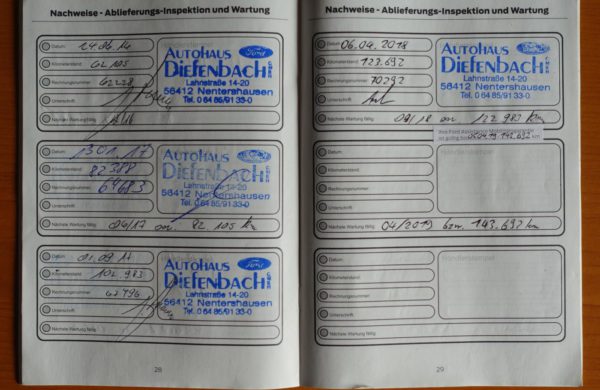 Nachweise - Ablieferungs-Inspektion und Wartung
Datum 14.06.16
Kilometerstand 62 105
Rechnungsnummer 62228
Unterschrift
Nächste Wartung fällig
AUTOHAUS Ford
DIEFENBACH GmbH
Lahnstraße 14-20
56412 Nentershausen
Tel. 0 64 85/91 33-0
Datum 13.01.17
Kilometerstand 82 388
Rechnungsnummer 64683
Unterschrift
Nächste Wartung fällig
AUTOHAUS Ford
DIEFENBACH GmbH
Lahnstraße 14-20
56412 Nentershausen
Tel. 0 64 85/91 33-0
Datum 01.09.17
Kilometerstand 102 983
Rechnungsnummer 67796
Unterschrift
Nächste Wartung fällig
AUTOHAUS Ford
DIEFENBACH GmbH
Lahnstraße 14-20
56412 Nentershausen
Tel. 0 64 85/91 33-0
28
Nachweise - Ablieferungs-Inspektion und Wartung
Datum 06.04.2018
Kilometerstand 123.692
Rechnungsnummer 70292
Unterschrift
Nächste Wartung fällig 09/18 122 983 km
AUTOHAUS Ford
DIEFENBACH GmbH
Lahnstraße 14-20
56412 Nentershausen
Tel. 0 64 85/91 33-0
Ihre Ford Assistance
ist gültig bis 143.692 km
Datum
Kilometerstand
Rechnungsnummer
Unterschrift
Händlerstempel
Nächste Wartung fällig 04/2019 bzw. 143.692 km
Datum
Kilometerstand
Rechnungsnummer
Unterschrift
Händlerstempel
Nächste Wartung fällig
29